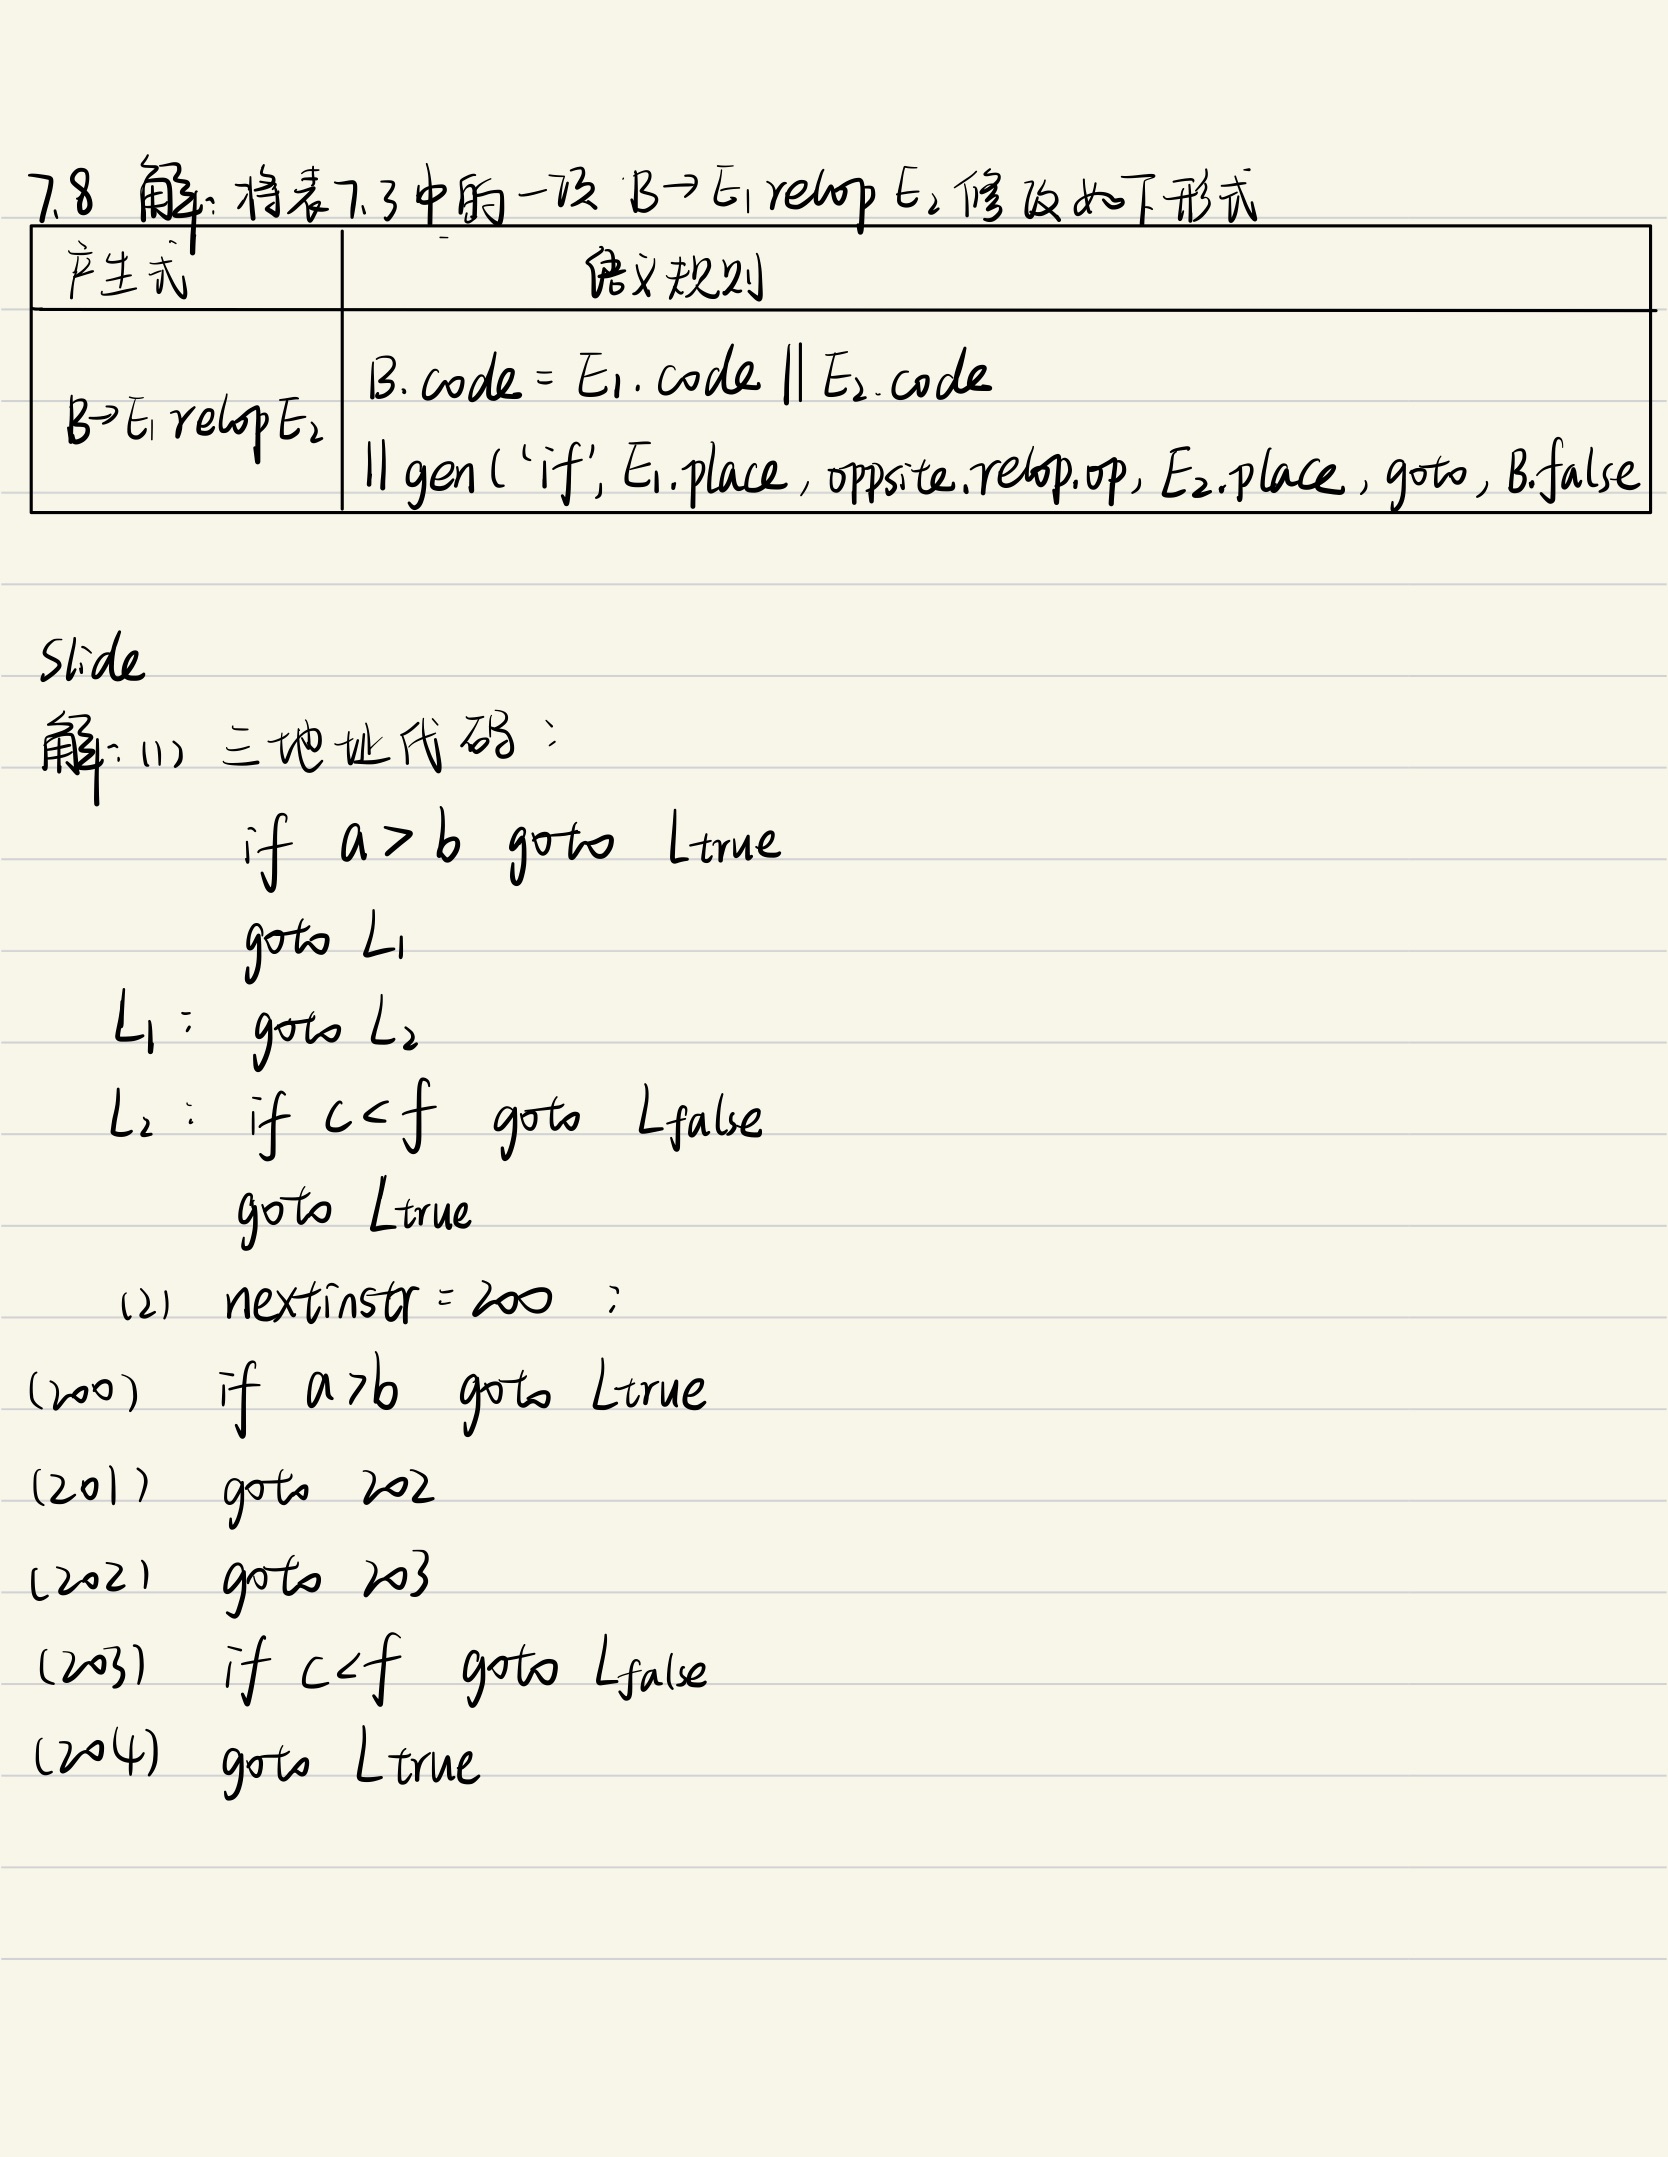 7.8 解:将表7.3中的一项 B→E₁ relop E₂修改如下形式
产生式 语义规则
B→E₁ relop E₂
B.code = E₁.code || E₂.code
|| gen('if', E₁.place, oppsite.relop.op, E₂.place, goto, B.false
Slide
解:(1) 三地址代码:
if a > b goto Ltrue
goto L₁
L₁: goto L₂
L₂: if c < f goto Lfalse
goto Ltrue
(2) nextinstr = 200 :
(200) if a>b goto Ltrue
(201) goto 202
(202) goto 203
(203) if c<f goto Lfalse
(204) goto Ltrue